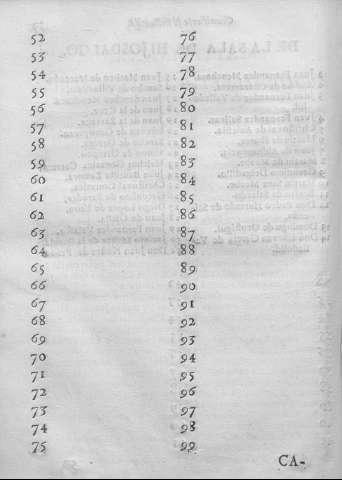 52
53
54
55
56
57
58
59
60
61
62
63
64
65
66
67
68
69
70
71
72
73
74
75
76
77
78
79
80
81
82
83
84
85
86
87
88
89
90
91
92
93
94
95
96
97
98
99
CA-